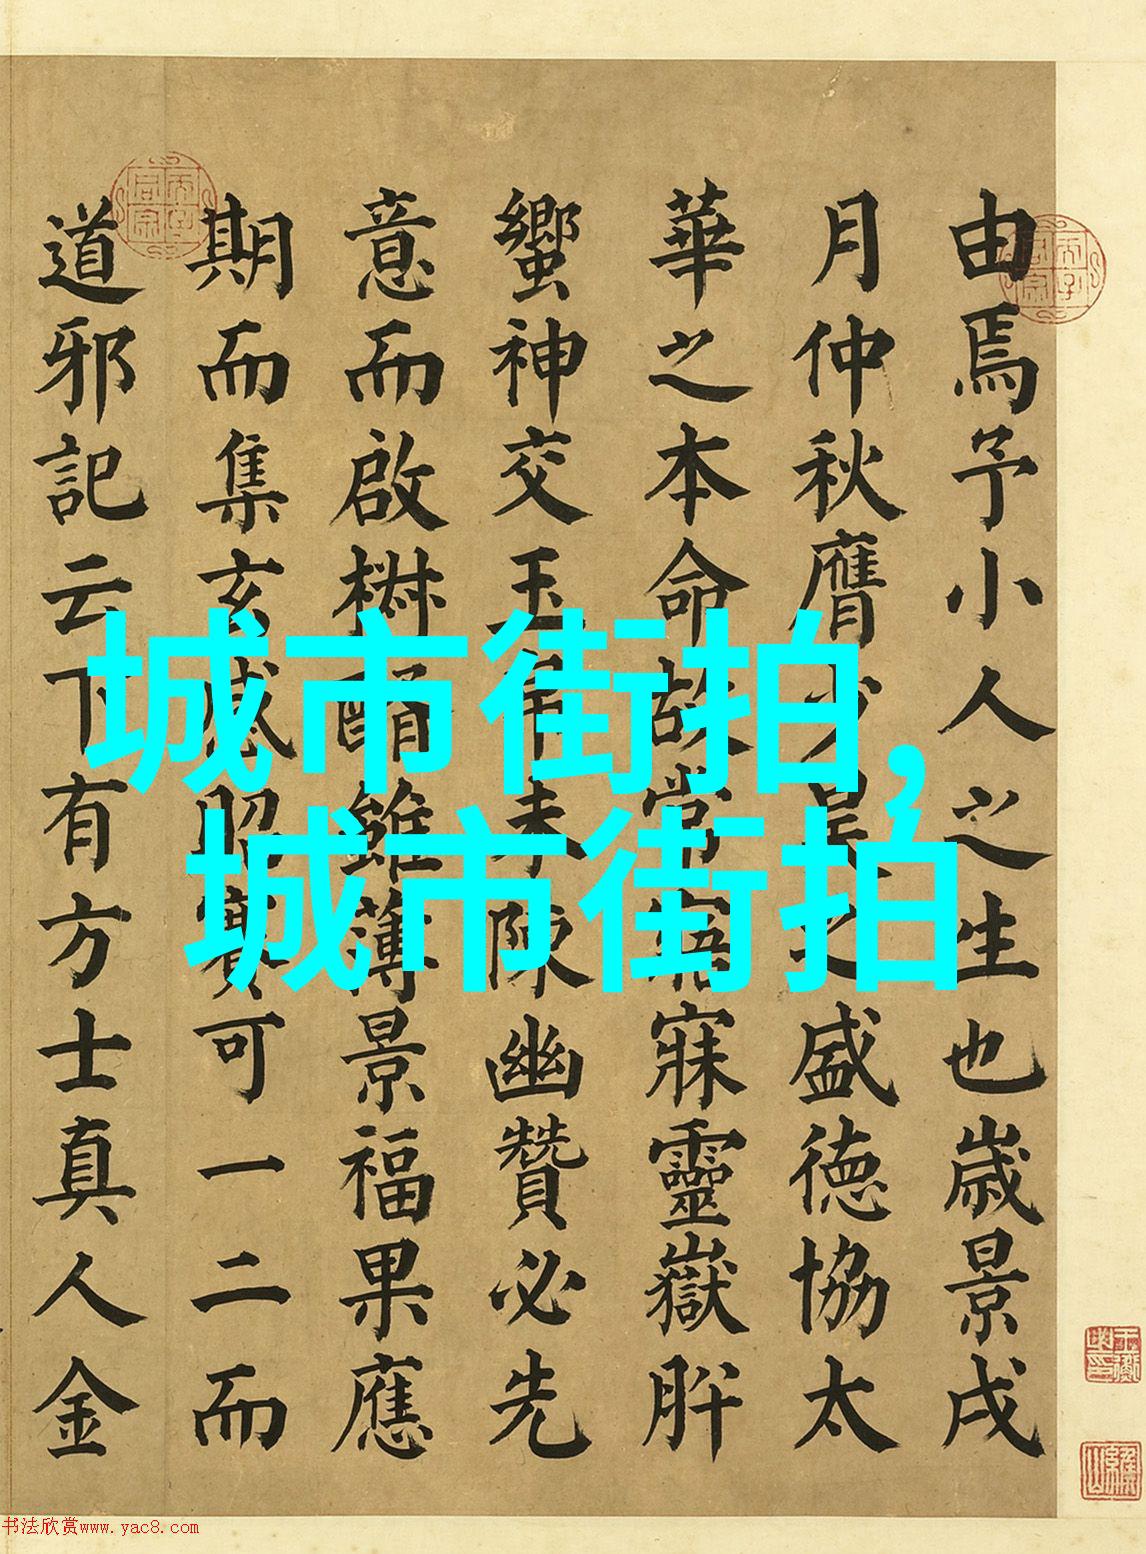 由焉予小人之生也歲景戌
月仲秋膺少之盛德協太
華之本命故常寤寐靈嶽肸
蠁神交玉帛未陳幽贊必先
意而啟雖薄景福果應
期而集玄感昭可一二而
道邪記云下有方士真人金
城市街拍,
城市街拍
书法欣赏www.yac8.com